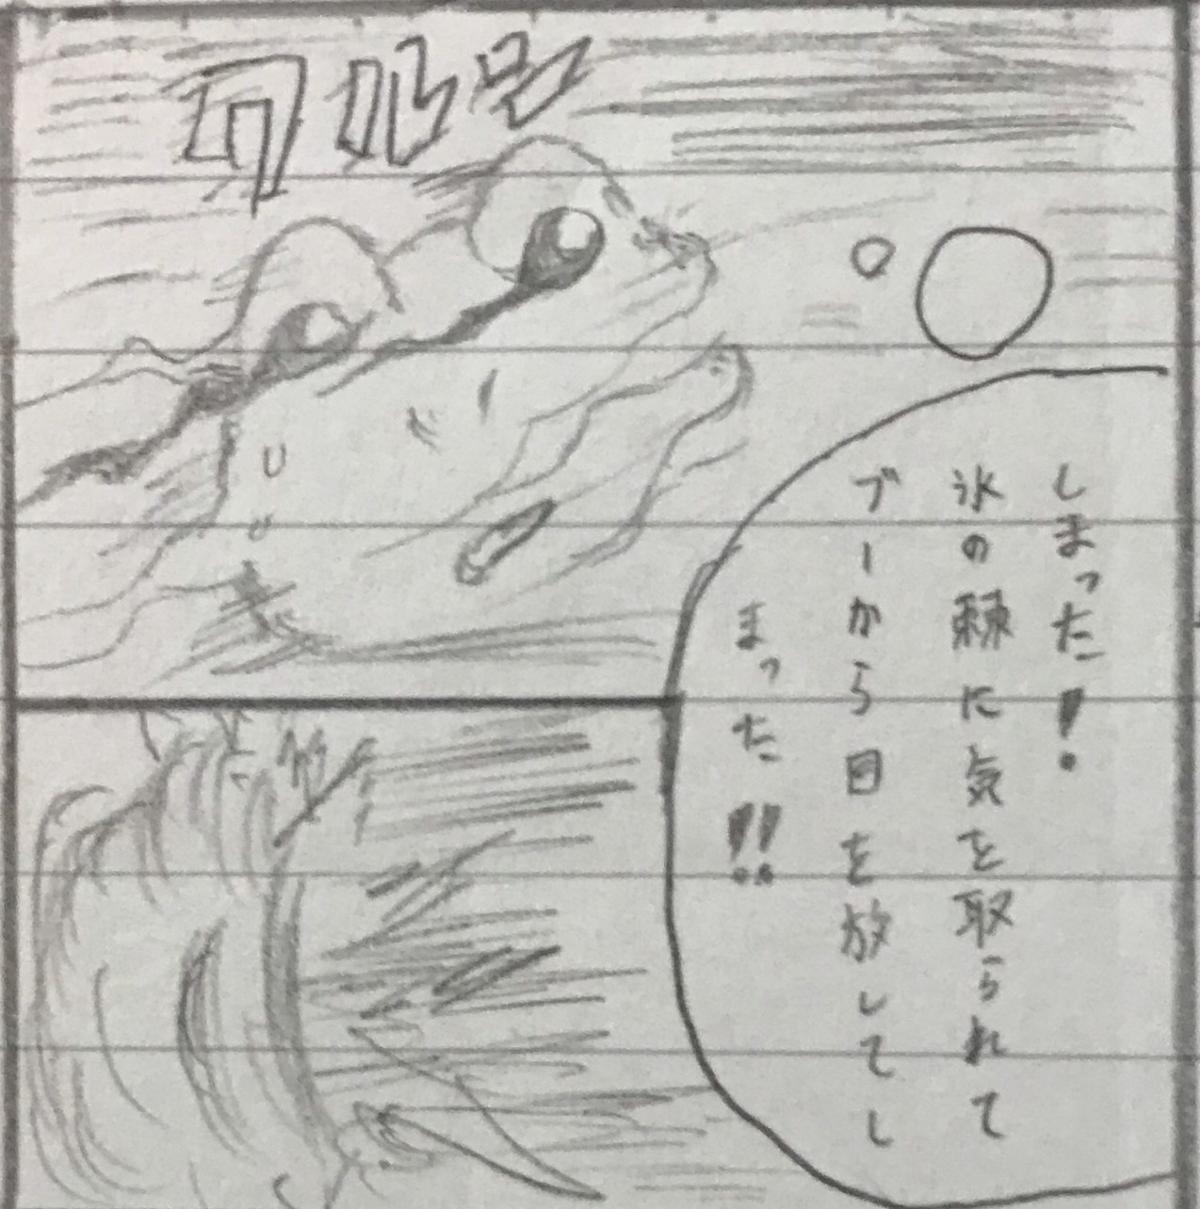 しまった!
氷の棘に気を取られて
ブーから目を放してし
まった!!